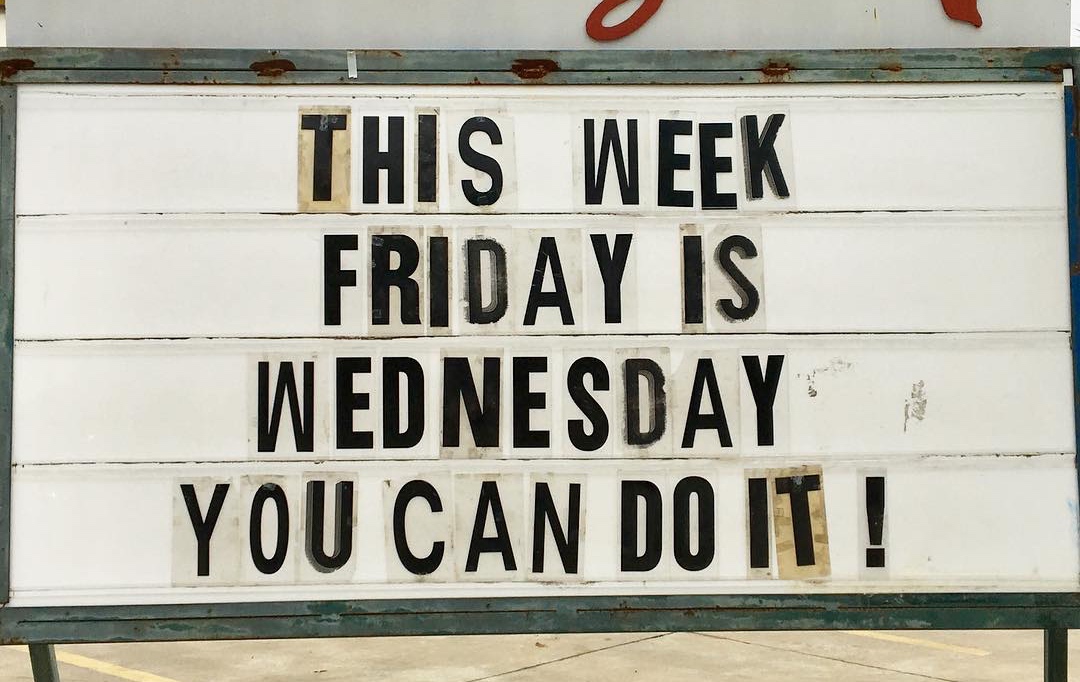 THIS WEEK
FRIDAY IS
WEDNESDAY
YOU CAN DO IT !